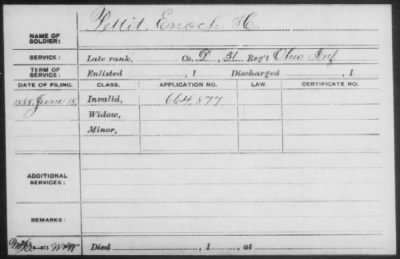 NAME OF SOLDIER: Pettit, Enoch H.
SERVICE: Late rank, Co. D, 31 Reg't Ohio Inf
TERM OF SERVICE: Enlisted , 1 Discharged , 1
DATE OF FILING. CLASS. APPLICATION NO. LAW. CERTIFICATE NO.
1888 June 18, Invalid, 664,877
Widow,
Minor,
ADDITIONAL SERVICES:
REMARKS:
Died , 1 , at